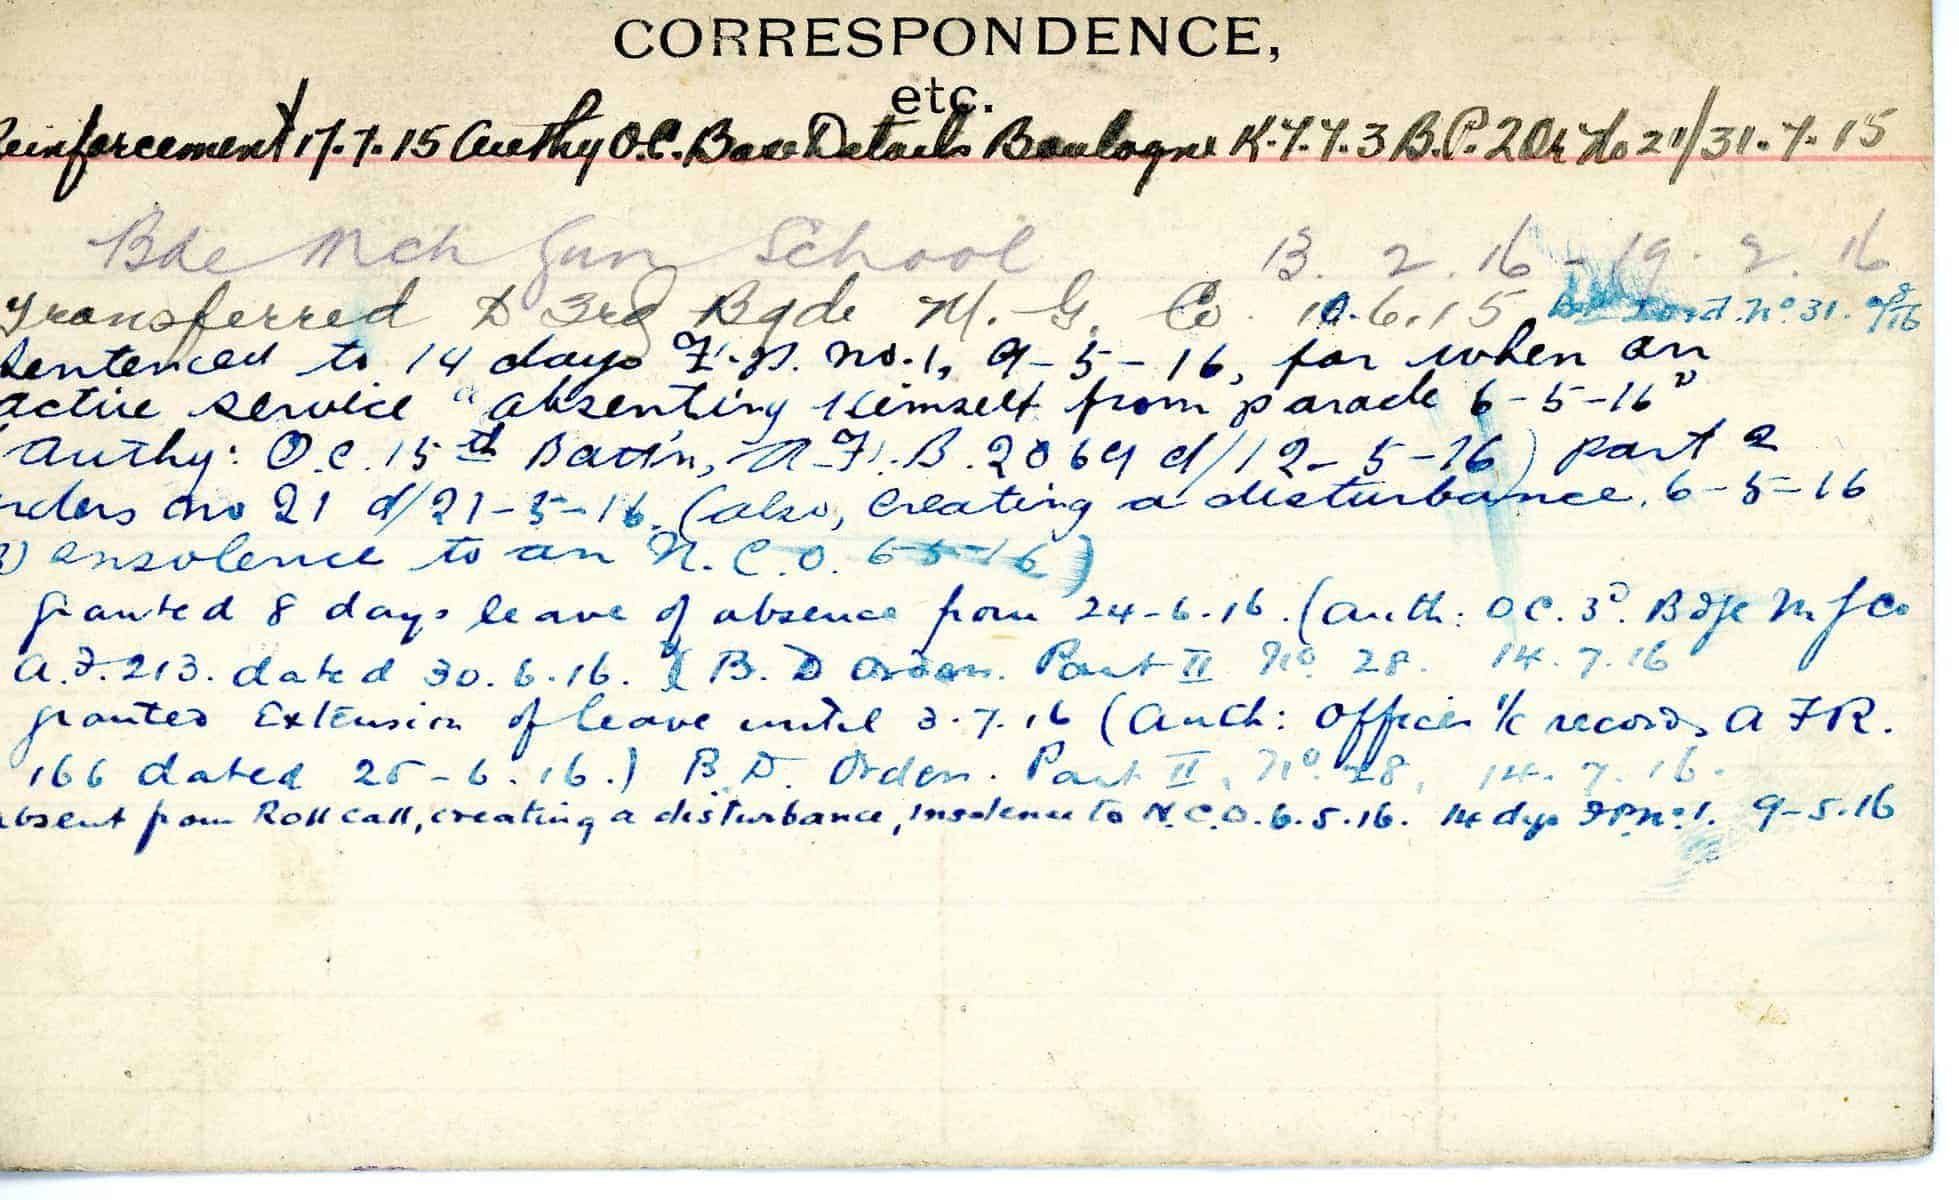 CORRESPONDENCE,
etc.
Reinforcement 17.7.15 Authy O.C. Base Details Boulogne K.7.7.3 B.P. 2 Or No 21/31.7.15
Bde Mch Gun School 13.2.16 - 19.2.16
Transferred 3rd Bgde M.G. Co. 10.6.15 No 31.
Sentenced to 14 days F.P. no.1, 9-5-16, for when on
active service "absenting himself from parade 6-5-16"
(Authy: O.C. 15th Batt'n, A.F.B. 2069 d/12-5-16) part 2
orders no 21 d/21-5-16. (also, creating a disturbance. 6-5-16
) insolence to an N.C.O. 6-5-16)
granted 8 days leave of absence from 24-6-16. (auth: OC. 3D. Bdge M G Co
A.F. 213. dated 30.6.16. B.D Orders. Part II No. 28. 14.7.16
granted Extension of leave until 3.7.16 (auth: Officer i/c records A F R.
166 dated 25-6.16.) B.D. Orders. Part II, No. 28, 14.7.16.
absent from Roll call, creating a disturbance, insolence to N.C.O. 6.5.16. 14 dys F.P. No 1. 9-5.16